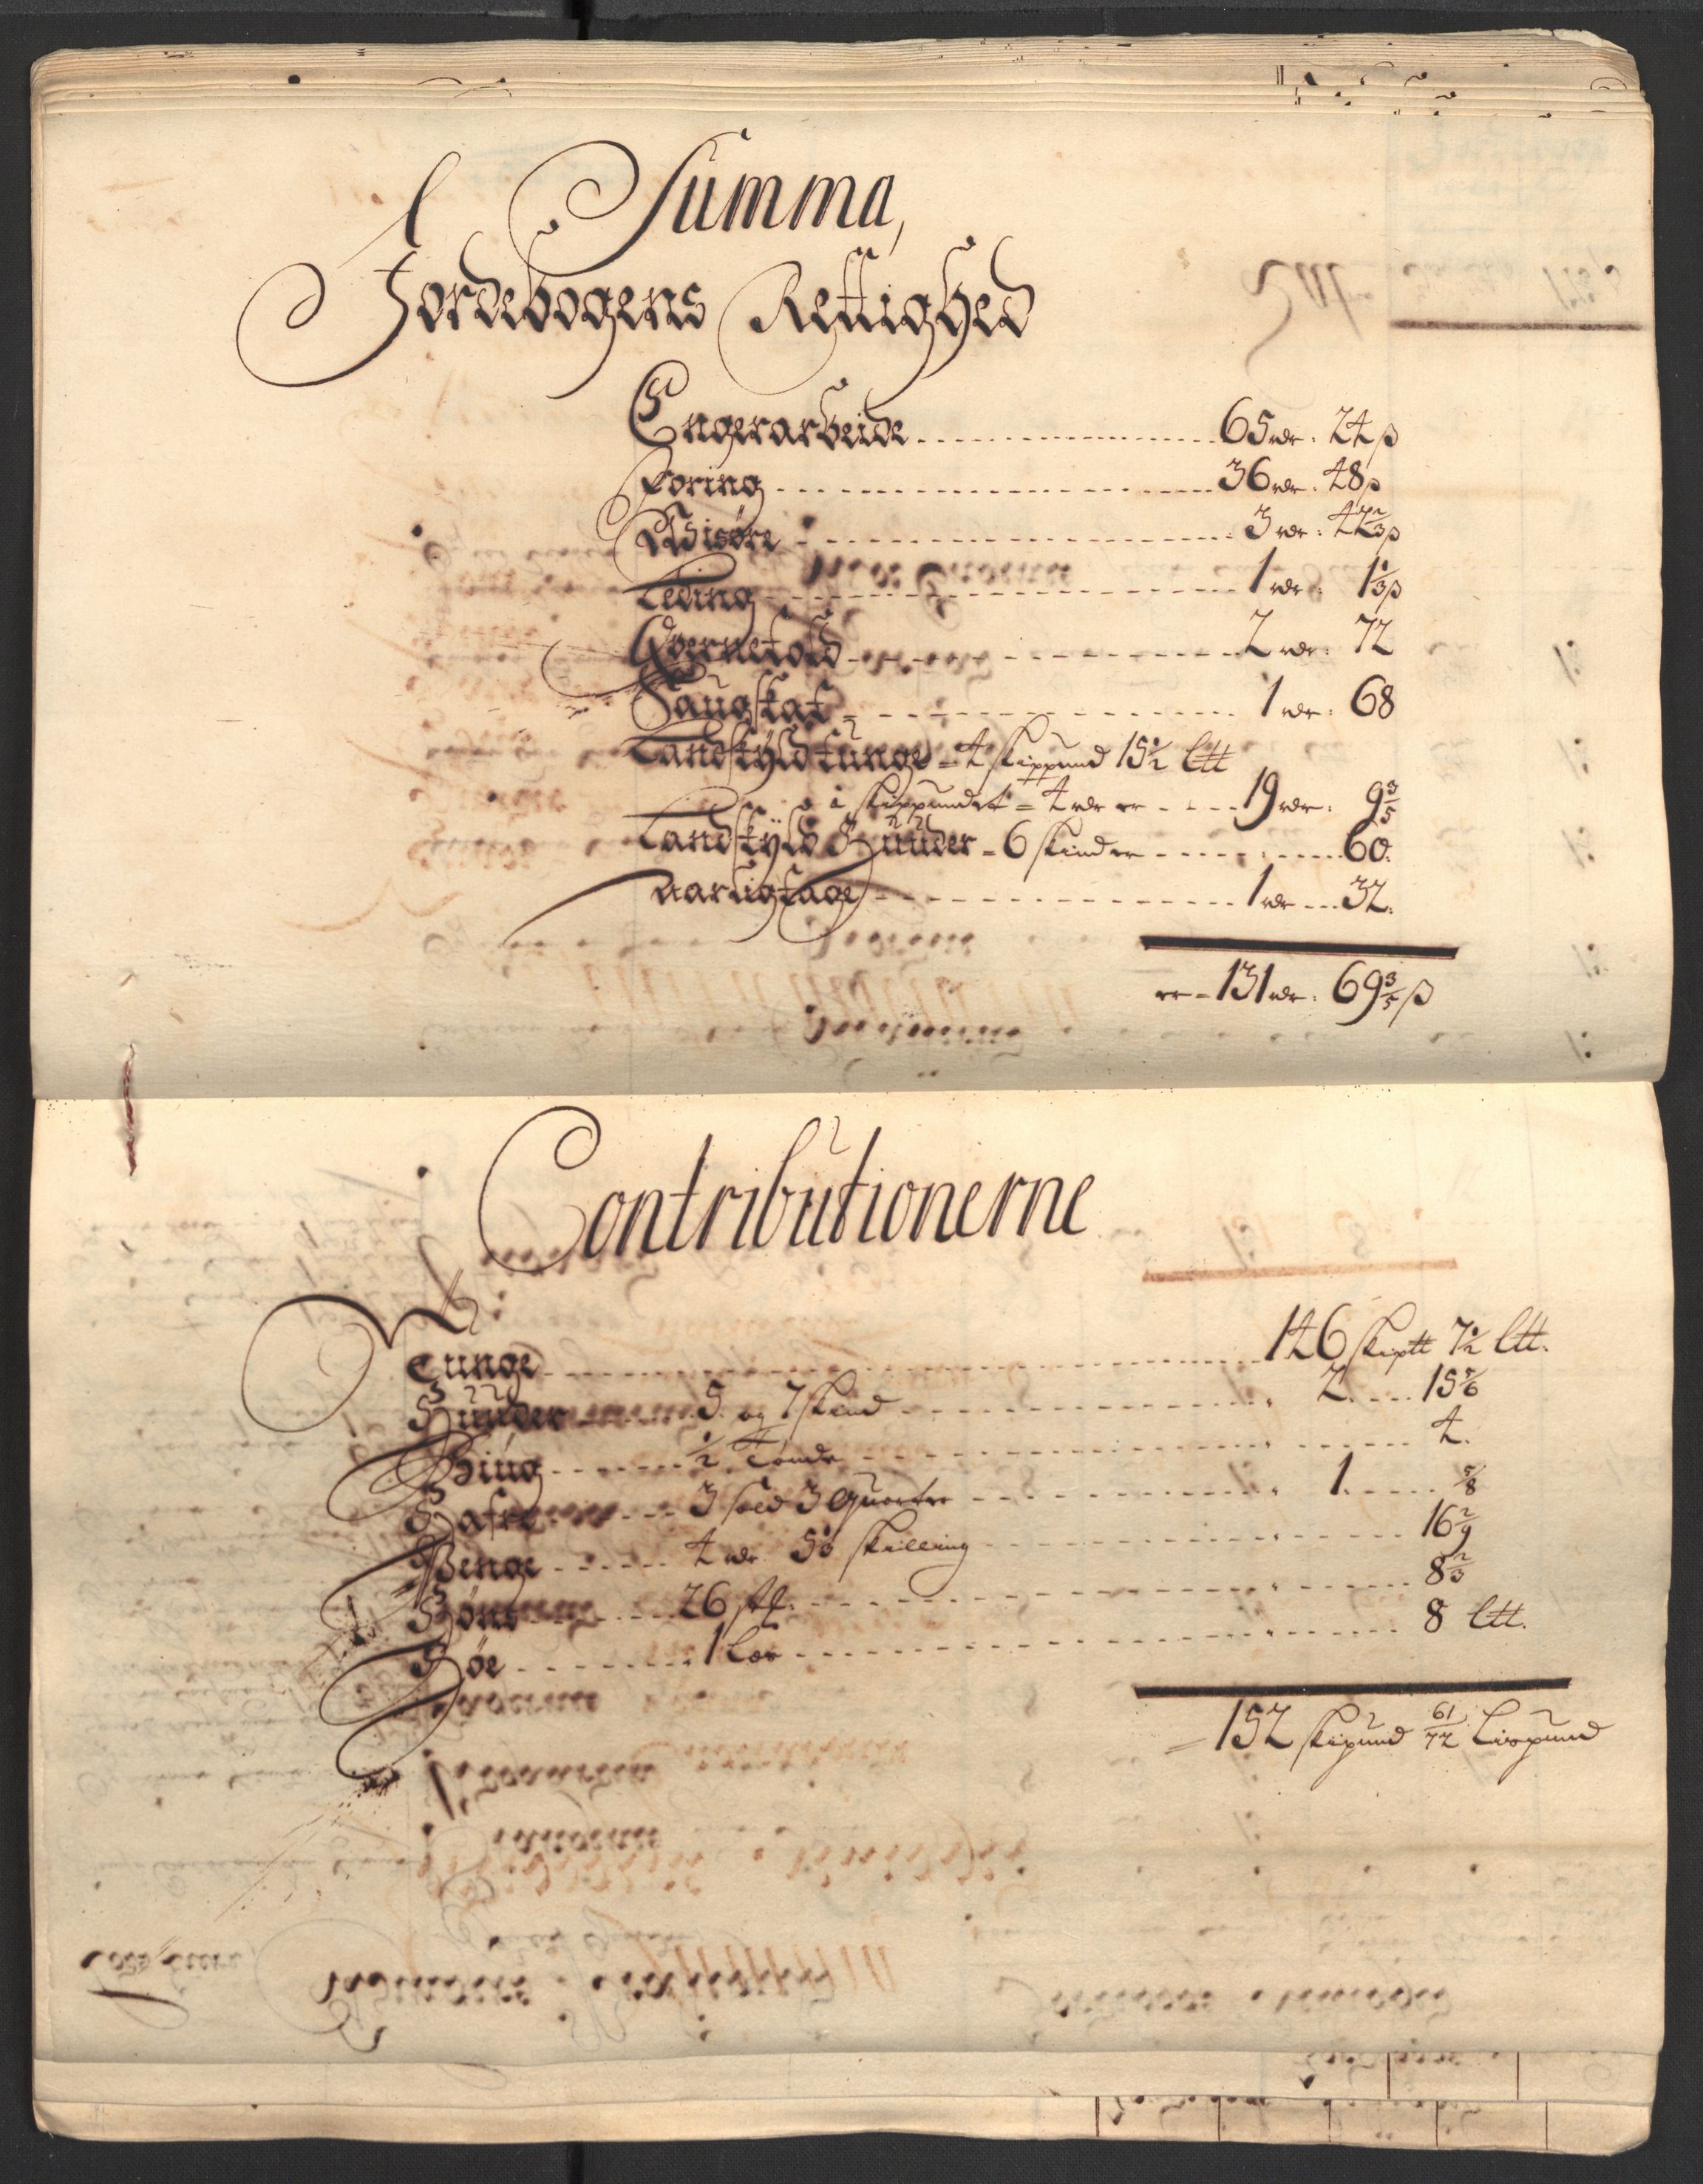 Summa,
Jordebogens Rettighed
Engerarbeide 65 rdr: 24 ß
Foring 36 rdr: 48 ß
Wisøre 3 rdr: 42 2/3 ß
Leding 1 rdr: 1 1/3 ß
Qvernetold 2 rdr: 72
Saugskat 1 rdr: 68
Landskyld tunge = 4 skippund 15 1/2 Ltt
i skippundet = 4 rdr er 19 rdr: 9 3/5
Landskyld Huuder = 6 skind er 60.
Aarligtage 1 rdr 32.
er = 131 rdr: 69 3/5 ß
Contributionerne
Tunge 146 skiptt 7 1/2 Ltt.
Huuder 5. og 7 skind 2. 15 5/6
Biug 1/2 Tønde 4.
Hafre 3 sold 3 quarter 1. 5/8
Penge 4 rdr 50 skilling 16 2/9
Høns 26 stk. 8 2/3
Høe 1 læs 8 Ltt.
= 152 skipund 61/72 Lispund